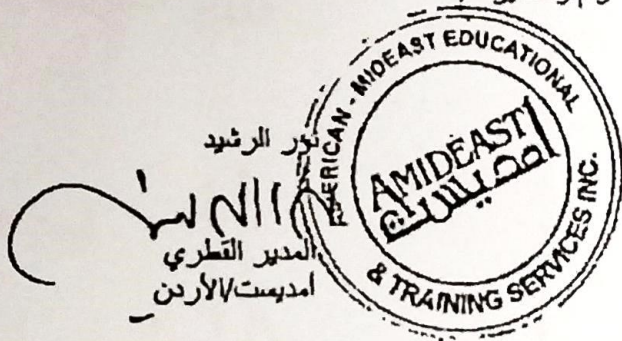 نور الرشيد
المدير القطري
امديست/الأردن
AMERICAN - MIDEAST EDUCATIONAL
& TRAINING SERVICES INC.
AMIDEAST
امديست